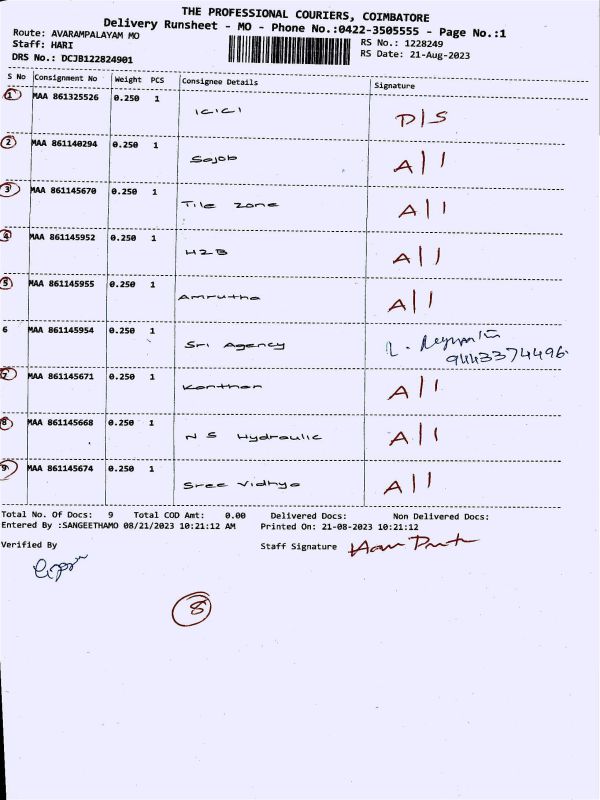 THE PROFESSIONAL COURIERS, COIMBATORE
Delivery Runsheet - MO - Phone No.:0422-3505555 - Page No.:1
Route: AVARAMPALAYAM MO
Staff: HARI RS No.: 1228249
DRS No.: DCJB122824901 RS Date: 21-Aug-2023
S No Consignment No Weight PCS Consignee Details Signature
1 MAA 861325526 0.250 1 ICICI D|S
2 MAA 861140294 0.250 1 Sojob A||
3 MAA 861145670 0.250 1 Tile Zone A||
4 MAA 861145952 0.250 1 H2B A||
5 MAA 861145955 0.250 1 Amrutha A||
6 MAA 861145954 0.250 1 Sri Agency
9443374496
7 MAA 861145671 0.250 1 Kanthan A||
8 MAA 861145668 0.250 1 N S Hydraulic A||
9 MAA 861145674 0.250 1 Sree Vidhya A||
Total No. Of Docs: 9 Total COD Amt: 0.00 Delivered Docs: Non Delivered Docs:
Entered By :SANGEETHAMO 08/21/2023 10:21:12 AM Printed On: 21-08-2023 10:21:12
Verified By Staff Signature
8